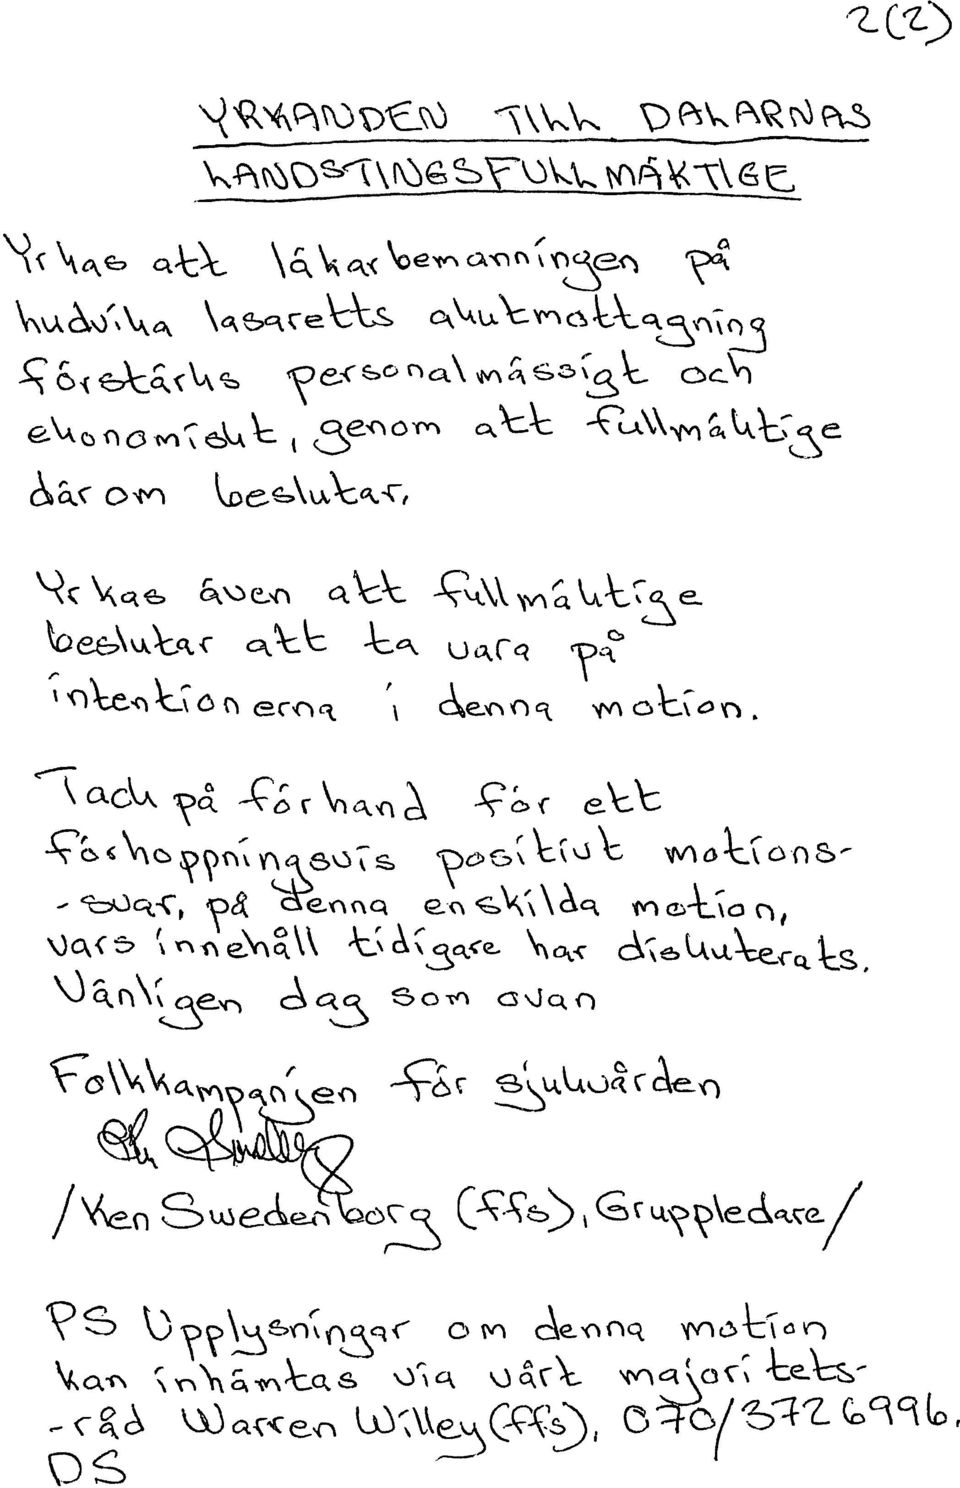 2(2)
YRKANDEN TILL DALARNAS
LANDSTINGSFULLMÄKTIGE
Yrkas att läkarbemanningen på
ludvika lasaretts akutmottagning
förstärks personalmässigt och
ekonomiskt, genom att fullmäktige
därom beslutar.
Yrkas även att fullmäktige
beslutar att ta vara på
intentionerna i denna motion.
Tack på förhand för ett
förhoppningsvis positivt motions-
-svar, på denna enskilda motion,
vars innehåll tidigare har diskuterats.
Vänligen dag som ovan
Folkkampanjen för sjukvården
/Ken Swedenborg (ffs), Gruppledare/
PS Upplysningar om denna motion
kan inhämtas via vårt majoritets-
-råd Warren Willey (ffs), 070/3726996.
DS